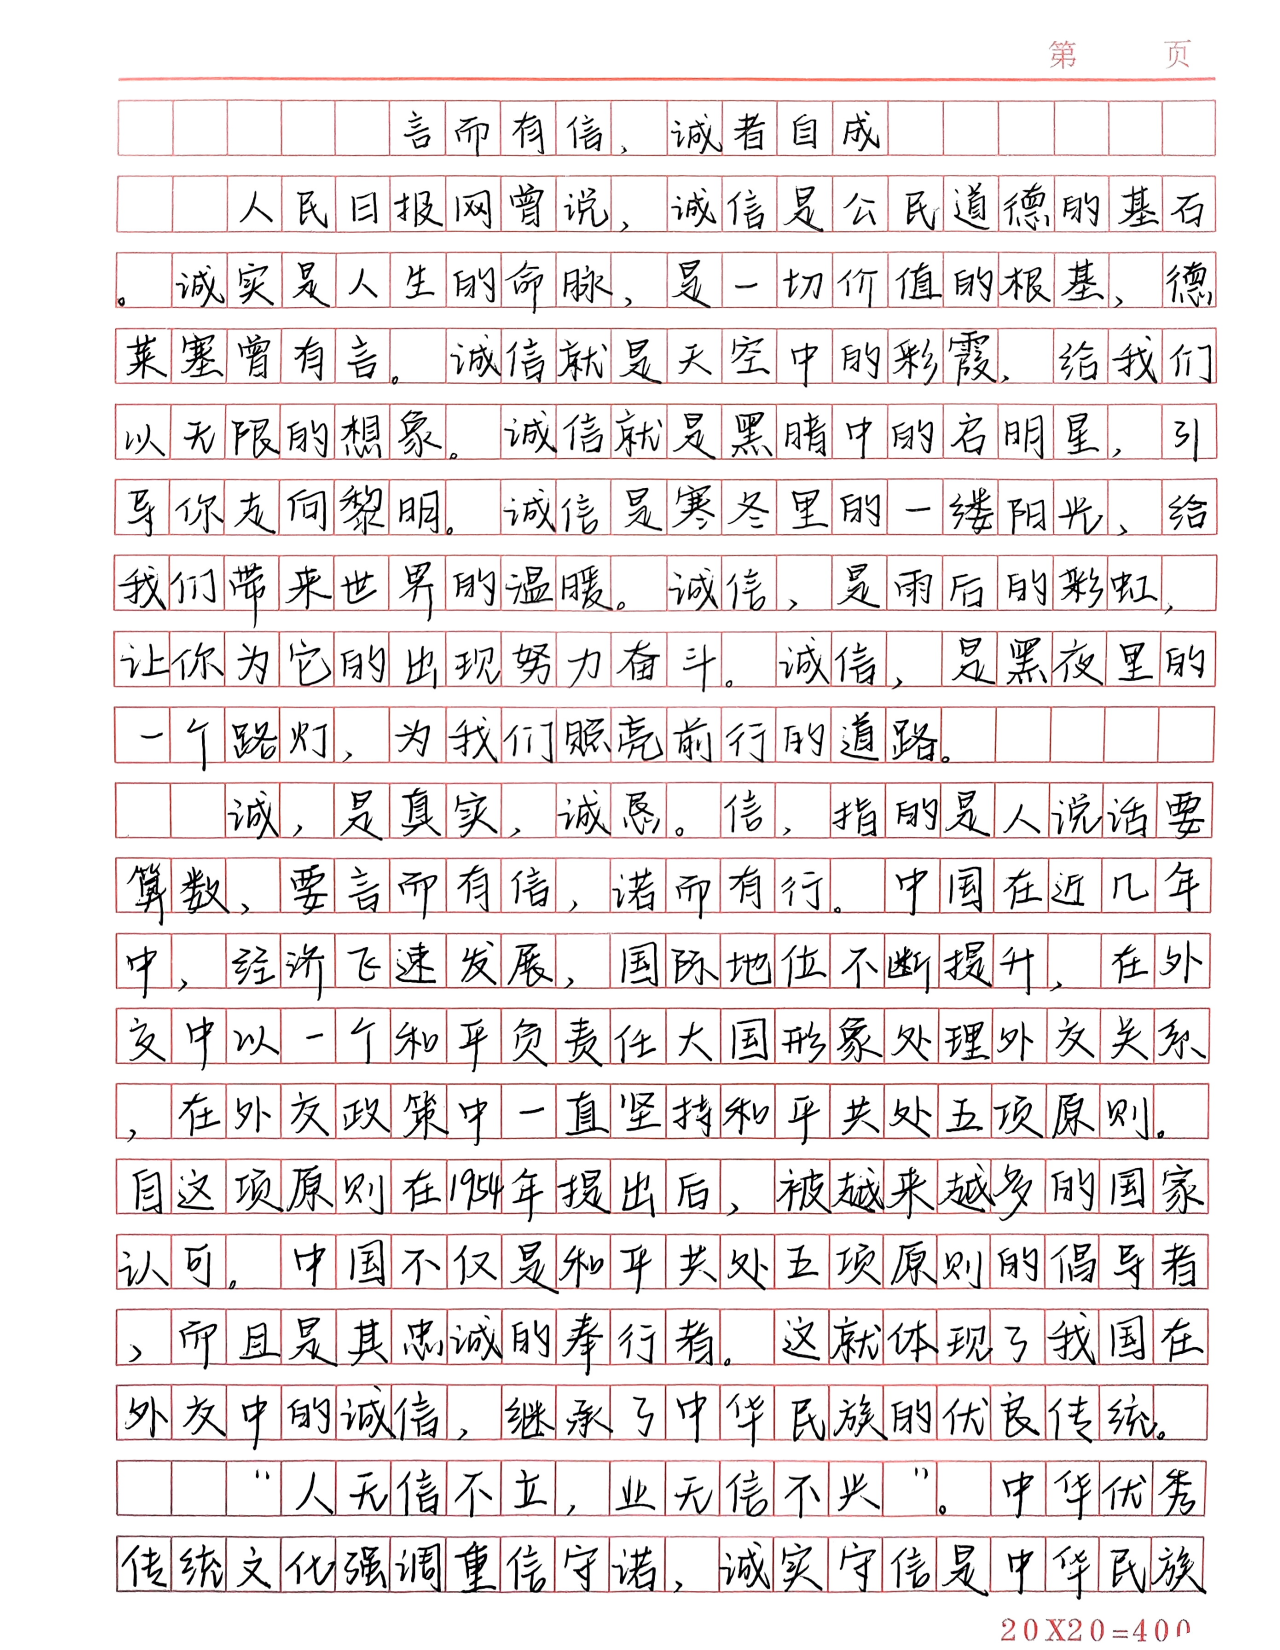 第 页
言而有信，诚者自成
人民日报网曾说，诚信是公民道德的基石
。诚实是人生的命脉，是一切价值的根基，德
莱塞曾有言。诚信就是天空中的彩霞，给我们
以无限的想象。诚信就是黑暗中的启明星，引
导你走向黎明。诚信是寒冬里的一缕阳光，给
我们带来世界的温暖。诚信，是雨后的彩虹，
让你为它的出现努力奋斗。诚信，是黑夜里的
一个路灯，为我们照亮前行的道路。
诚，是真实，诚恳。信，指的是人说话要
算数，要言而有信，诺而有行。中国在近几年
中，经济飞速发展，国际地位不断提升，在外
交中以一个和平负责任大国形象处理外交关系
，在外交政策中一直坚持和平共处五项原则。
自这项原则在1954年提出后，被越来越多的国家
认可。中国不仅是和平共处五项原则的倡导者
，而且是其忠诚的奉行者。这就体现了我国在
外交中的诚信，继承了中华民族的优良传统。
“人无信不立，业无信不兴”。中华优秀
传统文化强调重信守诺，诚实守信是中华民族
20X20=400